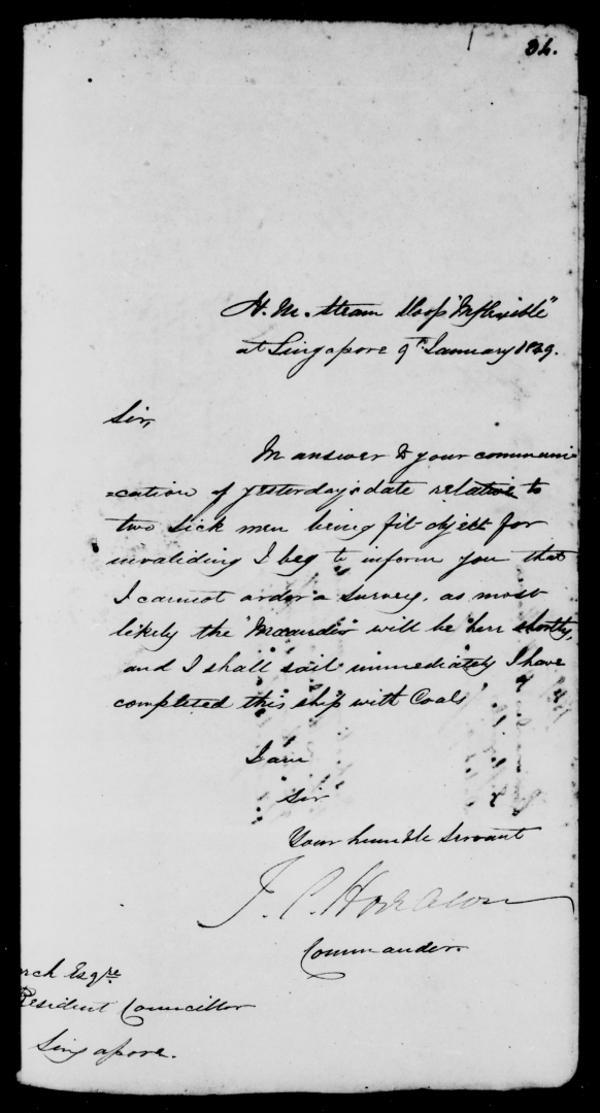 34.
H. M. Steam Sloop "Inflexible"
at Singapore 9th January 1849.
Sir,
In answer to your communi
=cation of yesterday's date relative to
two sick men being fit object for
invaliding I beg to inform you that
I cannot order a survey, as most
likely the "Mæander" will be here shortly,
and I shall sail immediately I have
completed this ship with Coals
I am
Sir
Your humble Servant
J. C. Hoseason
Commander.
rch Esqre
Resident Councillor
Singapore.